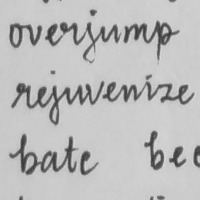 overjump
rejuvenize
bate bee